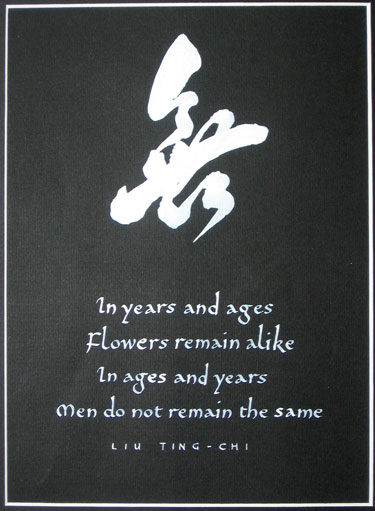 In years and ages
Flowers remain alike
In ages and years
Men do not remain the same
LIU TING-CHI